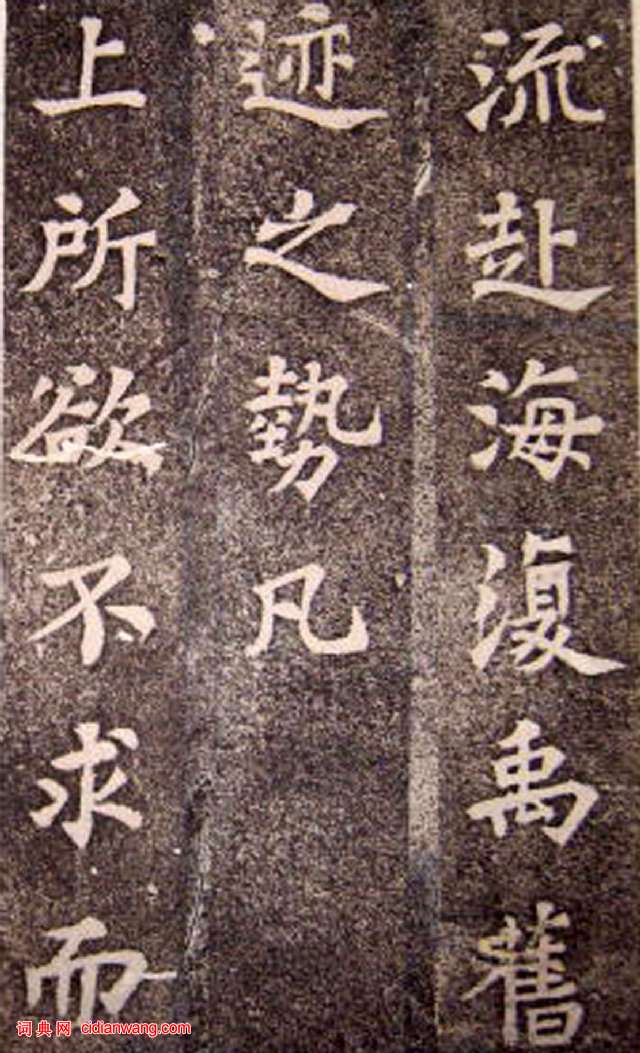 流赴海復禹舊
迹之勢凡
上所欲不求而
词典网 cidianwang.com